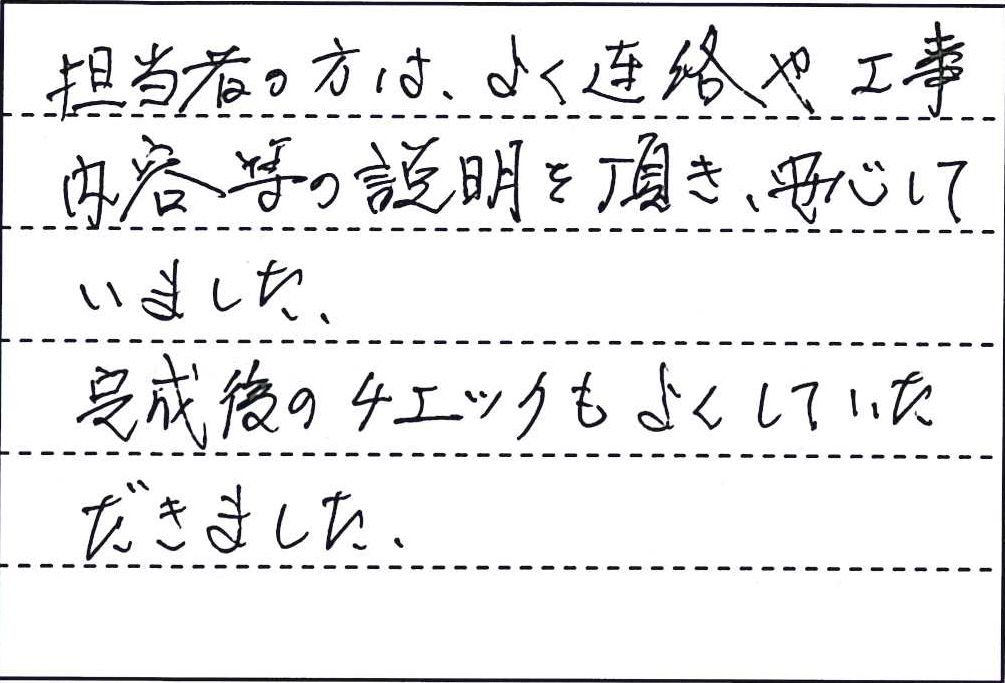 担当者の方は、よく連絡や工事
内容等の説明を頂き、安心して
いました、
完成後のチェックもよくしていた
だきました、